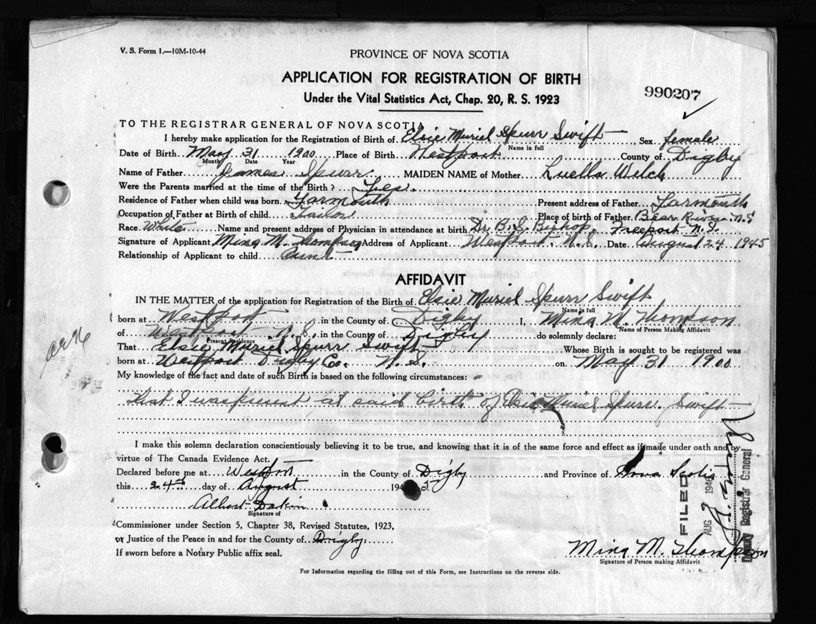 V. S. Form 1.—10M-10-44
PROVINCE OF NOVA SCOTIA
APPLICATION FOR REGISTRATION OF BIRTH
Under the Vital Statistics Act, Chap. 20, R. S. 1923
990207
TO THE REGISTRAR GENERAL OF NOVA SCOTIA
I hereby make application for the Registration of Birth of Elsie Muriel Spurr Swift Sex female
Name in full
Date of Birth May 31 1900 Place of Birth Westport County of Digby
Month Date Year
Name of Father James Spurr MAIDEN NAME of Mother Luella Welch
Were the Parents married at the time of the Birth? Yes.
Residence of Father when child was born Yarmouth Present address of Father Yarmouth
Occupation of Father at Birth of child Tailor Place of birth of Father Bear River N.S
Race White Name and present address of Physician in attendance at birth Dr. Bishop, Freeport N.S.
Signature of Applicant Mina M. Thompson Address of Applicant Westport. N.S. Date August 24 1945
Relationship of Applicant to child Aunt
AFFIDAVIT
IN THE MATTER of the application for Registration of the Birth of Elsie Muriel Spurr Swift
Name in full
born at Westport in the County of Digby I, Mina M. Thompson
Name of Person Making Affidavit
of Westport N.S. in the County of Digby do solemnly declare:
Present residence
That Elsie Muriel Spurr Swift Whose Birth is sought to be registered was
born at Westport Digby Co. N.S. on May 31 1900
My knowledge of the fact and date of such Birth is based on the following circumstances:
that I was present at said birth of Elsie Muriel Spurr Swift
I make this solemn declaration conscientiously believing it to be true, and knowing that it is of the same force and effect as if made under oath and by
virtue of The Canada Evidence Act.
Declared before me at Westport in the County of Digby and Province of Nova Scotia
this 24th day of August 1945
Albert Dakin
Signature of
Commissioner under Section 5, Chapter 38, Revised Statutes, 1923,
or Justice of the Peace in and for the County of Digby
If sworn before a Notary Public affix seal.
Mina M. Thompson
Signature of Person making Affidavit
For Information regarding the filling out of this Form, see Instructions on the reverse side.
FILED
AUG 194
Deputy Registrar General